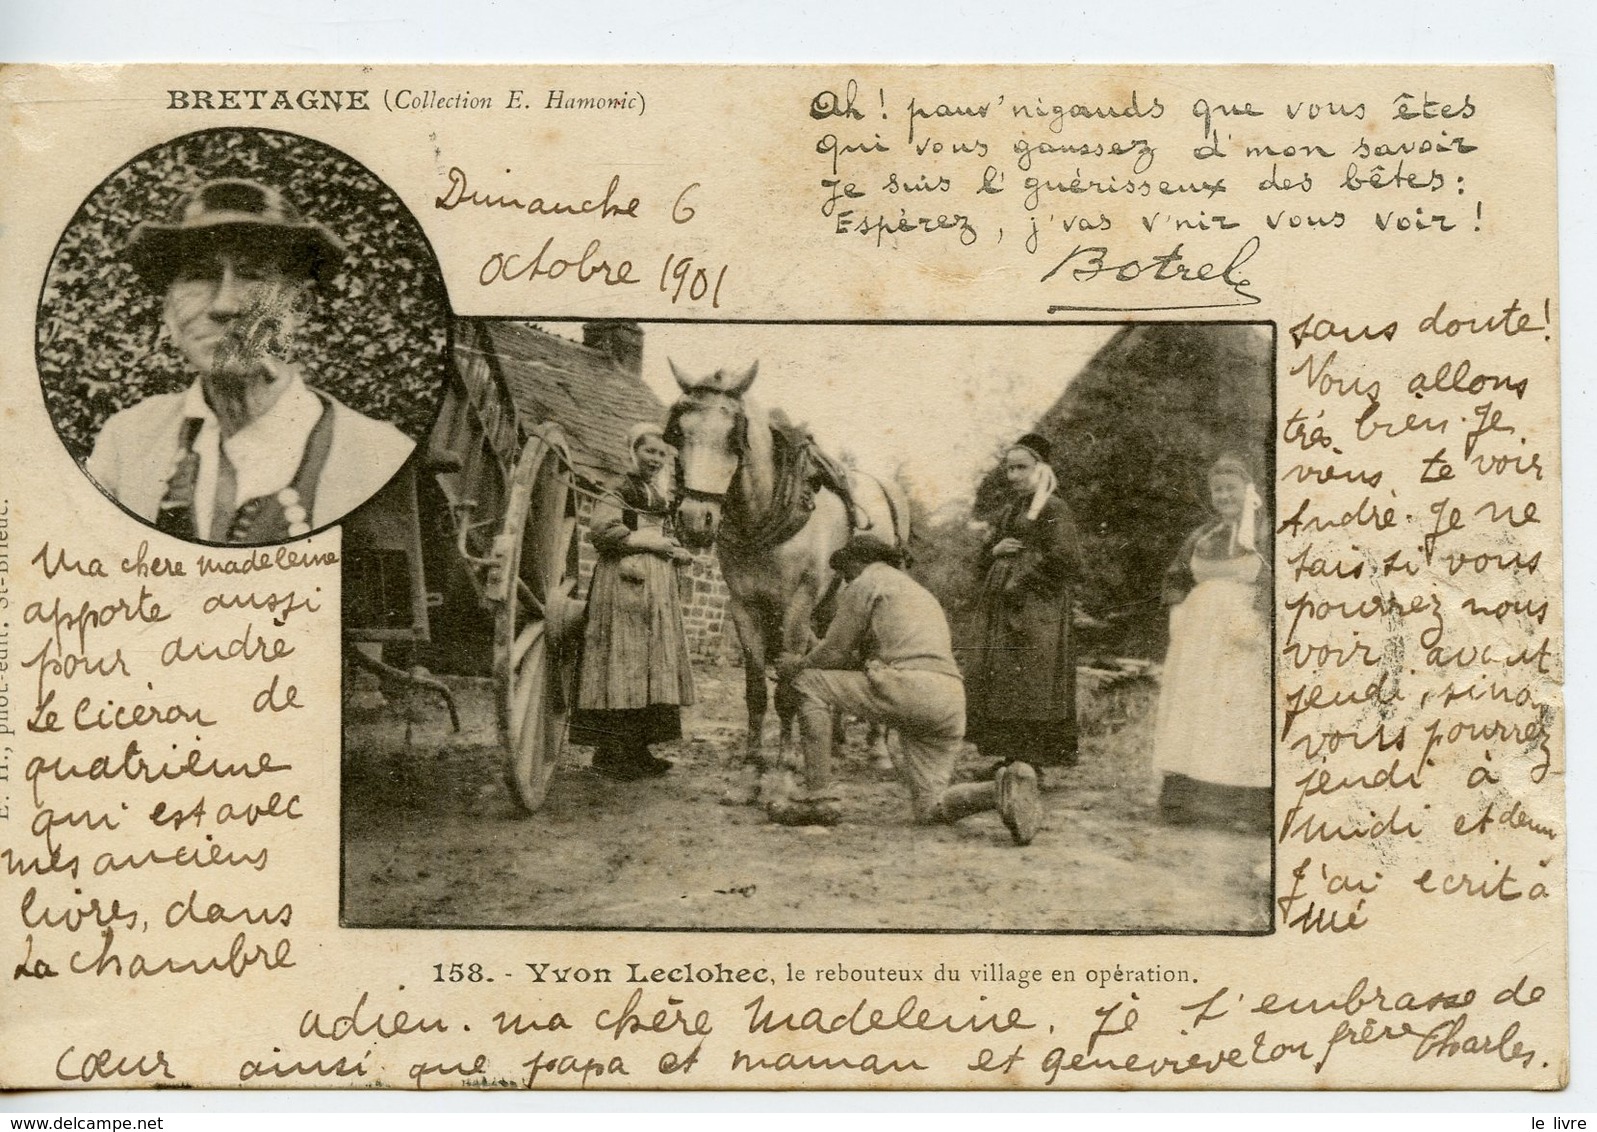 BRETAGNE (Collection E. Hamonic)
Ah ! pauv' nigauds que vous êtes
Qui vous gaussez d'mon savoir
Je suis l'guérisseux des bêtes :
Espérez, j'vas v'nir vous voir !
Botrel
Dimanche 6
octobre 1901
Ma chère madeleine
apporte aussi
pour andré
Le Cicéron de
quatrième
qui est avec
mes anciens
livres, dans
La chambre
sans doute !
Vous allons
très bien. Je
viens te voir
André. Je ne
sais si vous
pourrez nous
voir avant
jeudi, sinon
vous pourrez
jeudi à
midi et demi
J'ai écrit à
Mé
E. H., phot.-édit. St-Brieuc.
158. - Yvon Leclohec, le rebouteux du village en opération.
adieu. ma chère Madeleine. Je t'embrasse de
cœur ainsi que papa et maman et geneviève ton frère Charles.
le livre